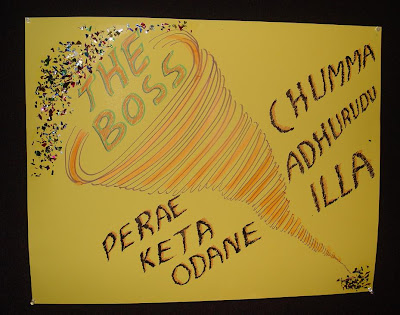 THE
BOSS
PERAE
KETA
ODANE
CHUMMA
ADHURUDU
ILLA